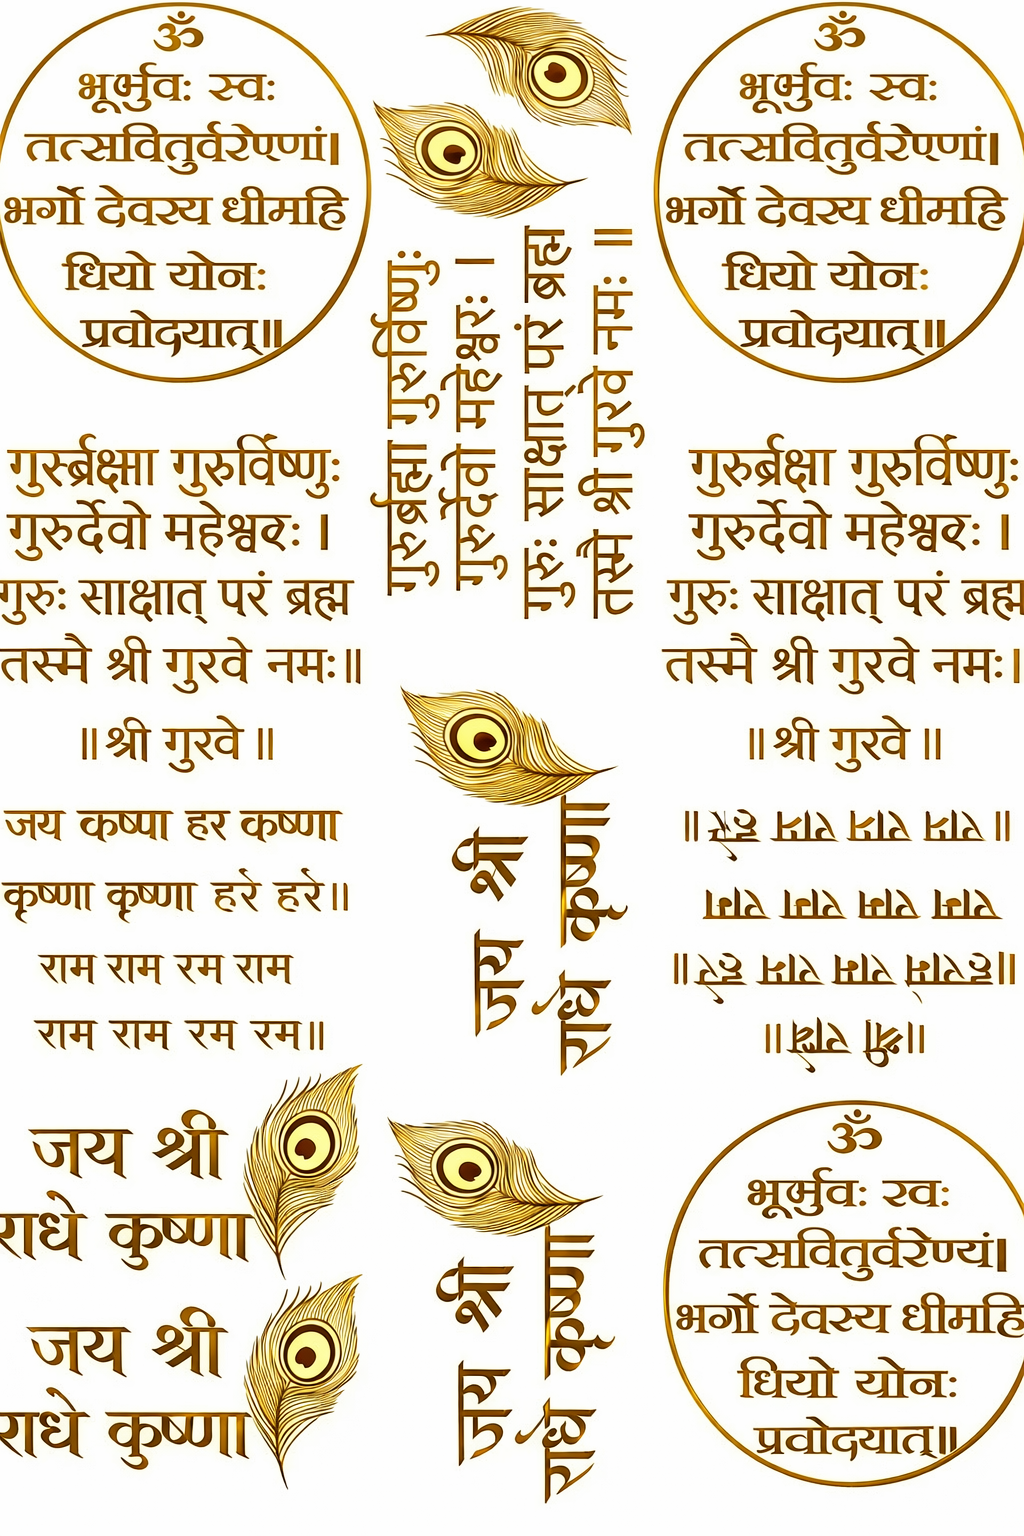 ॐ
भूर्भुवः स्वः
तत्सवितुर्वरेण्णां।
भर्गो देवस्य धीमहि
धियो योनः
प्रवोदयात्॥
गुरुर्ब्रह्मा गुरुर्विष्णुः
गुरुर्देवो महेश्वरः ।
गुरुः साक्षात् परं ब्रह्म
तस्मै श्री गुरवे नमः ॥
ॐ
भूर्भुवः स्वः
तत्सवितुर्वरेण्णां।
भर्गो देवस्य धीमहि
धियो योनः
प्रवोदयात्॥
गुरुर्विष्णुः
गुरुर्देवो महेश्वरः ।
गुरुः साक्षात् परं ब्रह्म
तस्मै श्री गुरवे नमः॥
॥श्री गुरवे॥
जय कष्पा हर कष्णा
कृष्णा कृष्णा हरे हरे॥
राम राम रम राम
राम राम रम रम॥
गुरुर्ब्रक्षा गुरुर्विष्णुः
गुरुर्देवो महेश्वरः ।
गुरुः साक्षात् परं ब्रह्म
तस्मै श्री गुरवे नमः।
॥श्री गुरवे॥
जय श्री
राधे कृष्णा
जय श्री
राधे कृष्णा
जय श्री
राधे कृष्णा
जय श्री
राधे कृष्णा
ॐ
भूर्भुवः रवः
तत्सवितुर्वरेण्यं।
भर्गो देवस्य धीमहि
धियो योनः
प्रवोदयात्॥